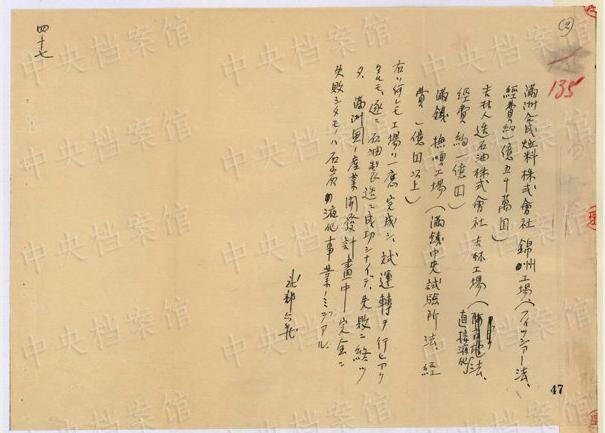 満洲合成燃料株式會社 錦州工場(フイッシアー法、
經費約一億五千萬円)
吉林人造石油株式會社 吉林工場(法、
直接液化
經費約一億円)
満鐵 撫順工場(満鐵中央試験所法、経
費一億円以上)
右ハ何レモ工場ハ一應完成シ、試運轉ヲ行ヒアリ
タルモ、遂ニ石油製造ニ成功シナイデ、失敗ニ終ツ
タ、満洲国ノ産業開發計畫中完全ニ
失敗シタモノハ石炭ノ液化事業ノミデアル、
四十七
135
47
中央档案馆